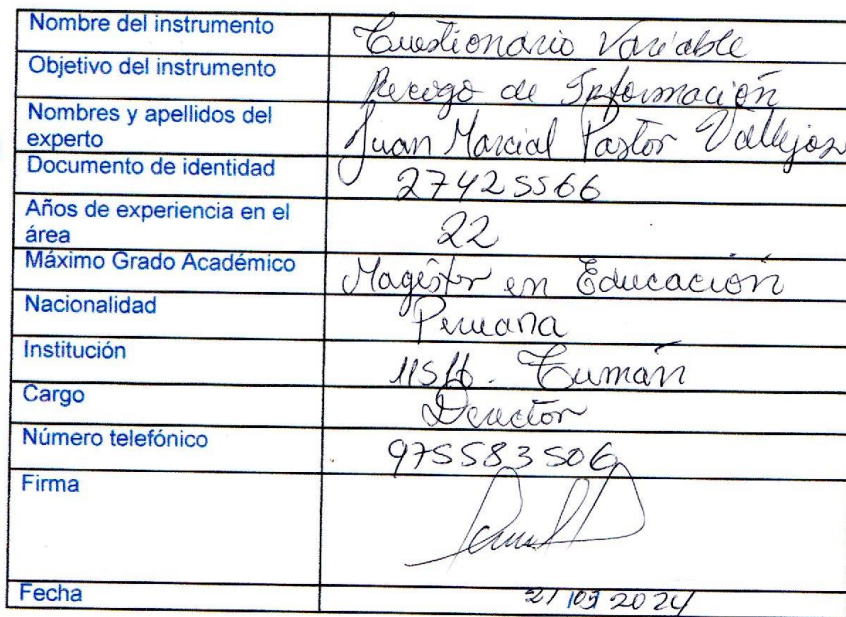 Nombre del instrumento Cuestionario Variable
Objetivo del instrumento Recogo de Información
Nombres y apellidos del
experto Juan Marcial Pastor Vallejos
Documento de identidad 27425566
Años de experiencia en el
área 22
Máximo Grado Académico Magíster en Educación
Nacionalidad Peruana
Institución Tumán
Cargo Director
Número telefónico 975583506
Firma
Fecha 21 09 2024